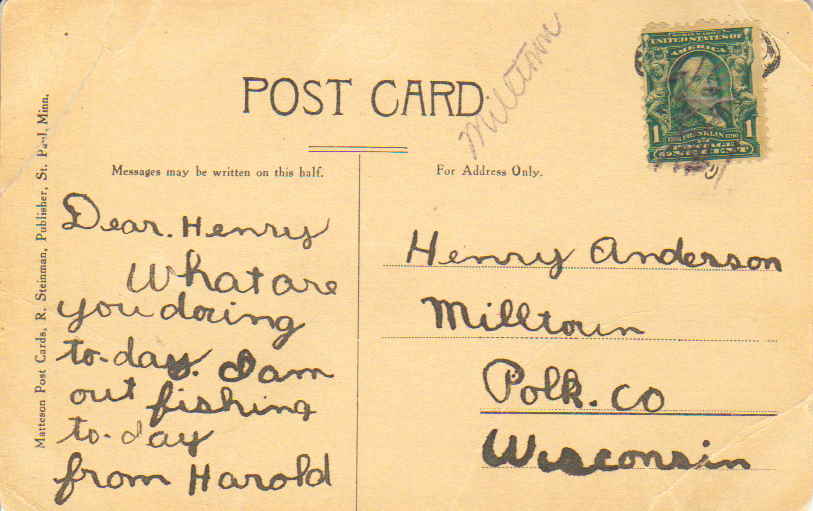 POST CARD
Milltown
UNITED STATES OF
AMERICA
1 FRANKLIN 1790 1
POSTAGE
ONE CENT
Matteson Post Cards, R. Steinman, Publisher, St. Paul, Minn.
Messages may be written on this half.
Dear. Henry
What are
you doring
to-day. I am
out fishing
to-day
from Harold
For Address Only.
Henry Anderson
Milltoun
Polk. CO
Wisconsin